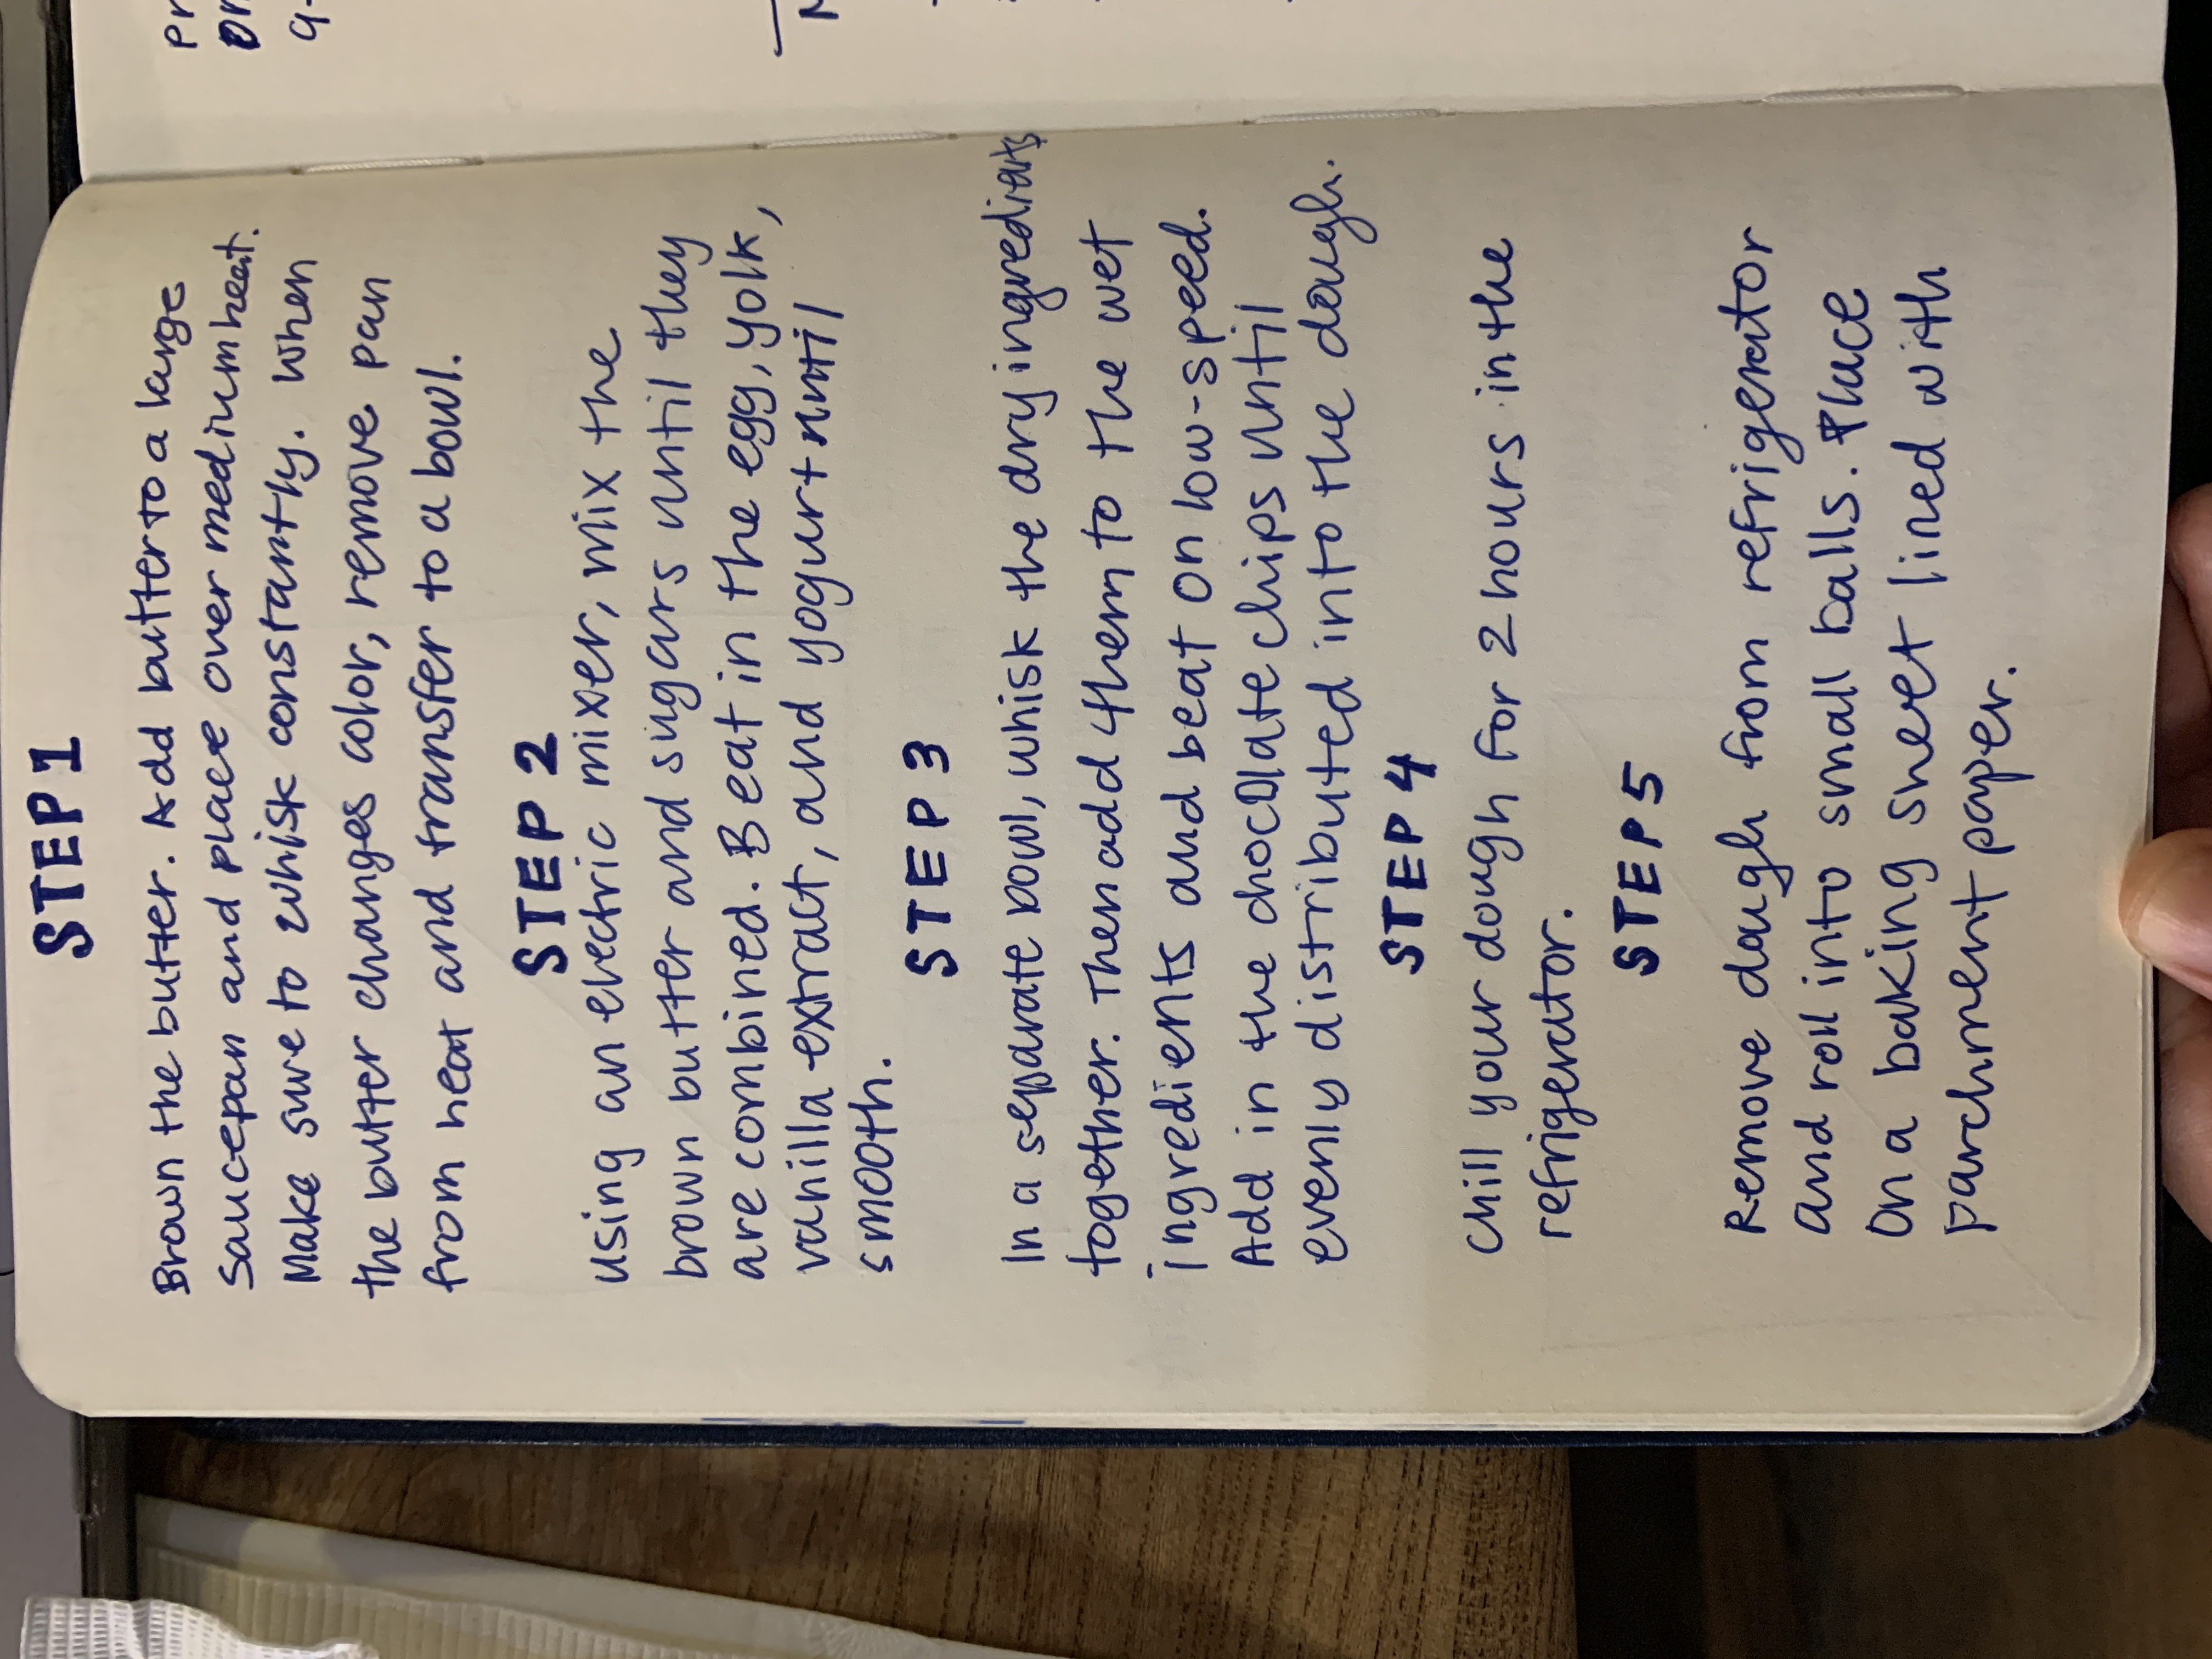 STEP 1
Brown the butter. Add butter to a large
saucepan and place over medium heat.
Make sure to whisk constantly. When
the butter changes color, remove pan
from heat and transfer to a bowl.
STEP 2
Using an electric mixer, mix the
brown butter and sugars until they
are combined. Beat in the egg, yolk,
vanilla extract, and yogurt until
smooth.
STEP 3
In a separate bowl, whisk the dry ingredients
together. Then add them to the wet
ingredients and beat on low-speed.
Add in the chocolate chips until
evenly distributed into the dough.
STEP 4
Chill your dough for 2 hours in the
refrigerator.
STEP 5
Remove dough from refrigerator
and roll into small balls. Place
on a baking sheet lined with
parchment paper.